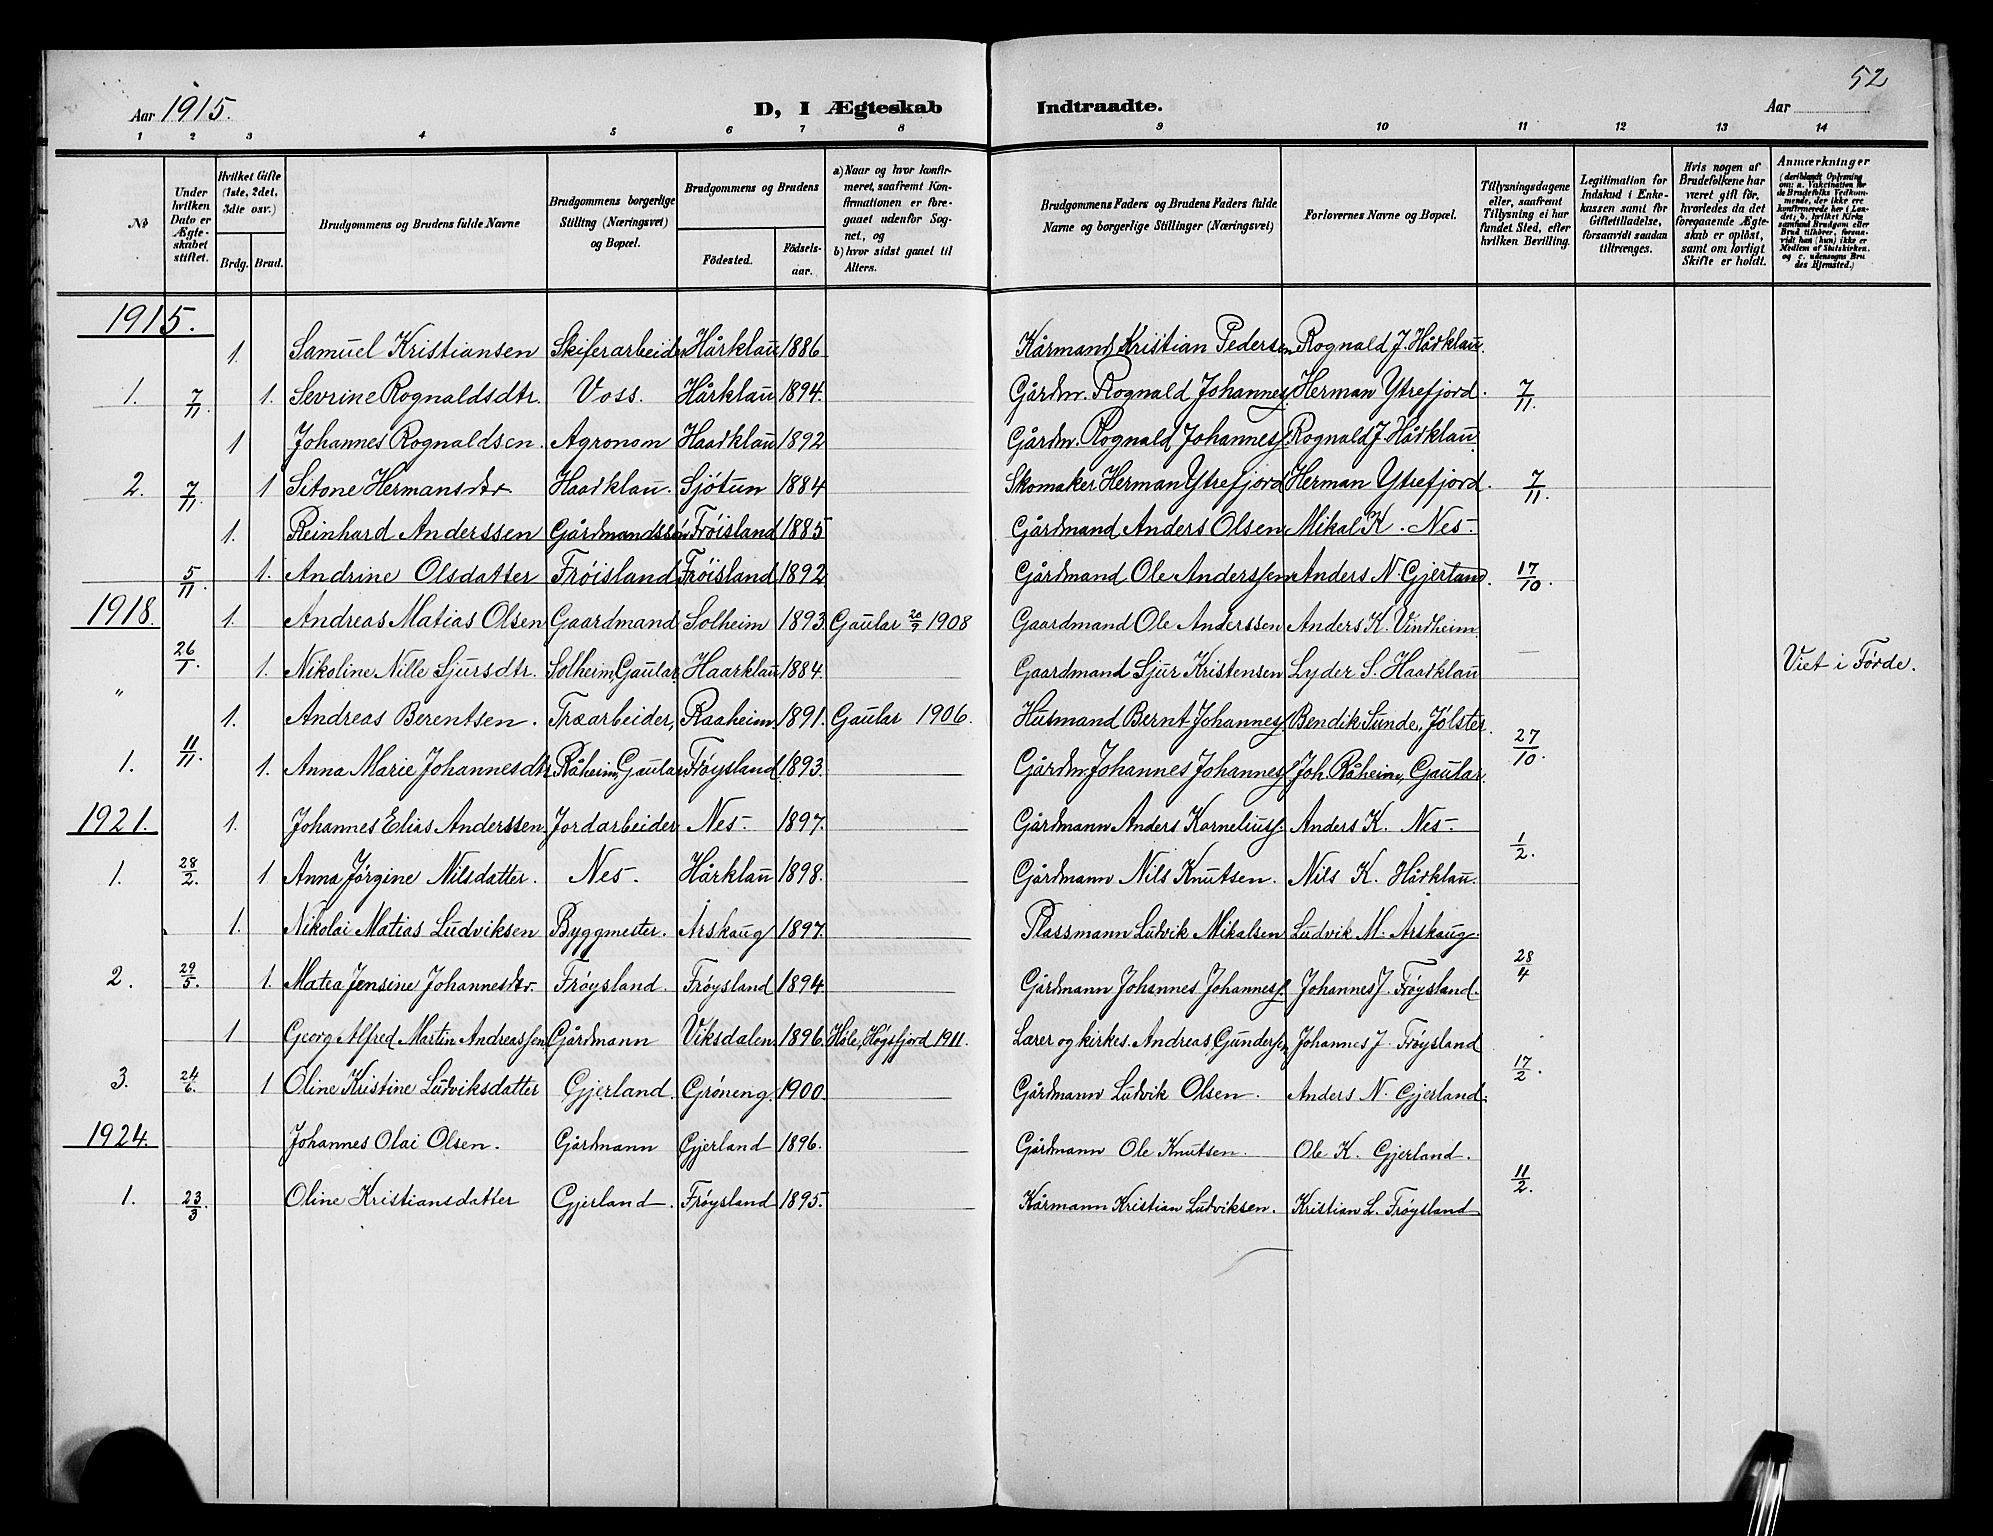 52
Aar 1915. D, I Ægteskab Indtraadte. Aar
1 2 3 4 5 6 7 8 9 10 11 12 13 14
№
Under hvilken Dato er Ægteskabet stiftet.
Hvilket Gifte (1ste, 2det, 3die osv.)
Brdg. Brud.
Brudgommens og Brudens fulde Navne
Brudgommens borgerlige Stilling (Næringsvei) og Bopæl.
Brudgommens og Brudens
Födested. Födselsaar.
a) Naar og hvor konfirmeret, saafremt Konfirmationen er foregaaet udenfor Sognet, og
b) hvor sidst gaaet til Alters.
Brudgommens Faders og Brudens Faders fulde Navne og borgerlige Stillinger (Næringsvei)
Forlovernes Navne og Bopæl.
Tillysningsdagene eller, saafremt Tillysning ei har fundet Sted, efter hvilken Bevilling.
Legitimation for Indskud i Enkekassen samt for Giftetilladelse, forsaavidt saadan tiltrænges.
Hvis nogen af Brudefolkene har været gift før, hvorledes da det foregaaende Ægteskab er oplöst, samt om lovligt Skifte er holdt.
Anmærkninger (deriblandt Oplysning om: a. Vakcination for de Brudefolks Vedkommende, der ikke ere konfirmerede her i Landet; b. hvilket Kirkesamfund Brudgom eller Brud tilhörer, forsaavidt han (hun) ikke er Medlem af Statskirken. og c. udensogns Brudes Hjemsted.)
1915.
1. Samuel Kristiansen Skiferarbeider Hårklau 1886 Kårmand Kristian Pedersen Rognald J. Hårklau.
1. 7/11. 1. Sevrine Rognaldsdtr. Voss. Hårklau 1894. Gårdm. Rognald Johannes. Herman Ytrefjord. 7/11.
1 Johannes Rognaldsen. Agronom Haarklau 1892 Gårdm. Rognald Johannes. Rognald J. Hårklau
2. 7/11 1 Sitone Hermansdtr Haarklau. Sjøtun 1884 Skomaker Herman Ytrefjord Herman Ytrefjord. 7/11.
1. Reinhard Anderssen Gårdmandssøn Frøisland 1885 Gårdmand Anders Olsen Mikal K. Nes.
5/11 1. Andrine Olsdatter Frøisland Frøisland 1892 Gårdmand Ole Anderssen Anders N. Gjerland. 17/10.
1918. 1. Andreas Matias Olsen Gaardmand Solheim 1893 Gaular 20/9 1908 Gaardmand Ole Anderssen Anders K. Vindheim
26/1. 1. Nikoline Nille Sjursdtr. Solheim, Gaular. Haarklau 1884. Gaardmand Sjur Kristensen Lyder S. Haarklau — Viet i Førde.
" 1. Andreas Berentsen. Træarbeider, Raaheim 1891. Gaular 1906. Husmand Bernt Johannes. Bendik Sunde, Jølster.
1. 11/11. 1. Anna Marie Johannesdtr. Råheim, Gaular Frøysland 1893. Gårdm. Johannes Johannes. Joh. Råheim, Gaular. 27/10.
1921. 1. Johannes Elias Anderssen. Jordarbeider Nes. 1897. Gårdmann Anders Kornelius. Anders K. Nes.
1. 28/2. 1. Anna Jørgine Nilsdatter. Nes. Hårklau 1898. Gårdmann Nils Knutsen. Nils K. Hårklau. 1/2.
1. Nikolai Matias Ludviksen Byggmester. Årskaug 1897. Plassmann Ludvik Mikalsen Ludvik M. Årskaug.
2. 29/5. 1. Matea Jensine Johannesdtr. Frøysland. Frøysland 1894 Gårdmann Johannes Johannes. Johannes J. Frøysland. 28/4
1 Georg Alfred Martin Andreassen Gårdmann Viksdalen 1896. Høle, Høgsfjord 1911. Lærer og kirkes. Andreas Gundersen Johannes J. Frøysland
3. 24/6. 1 Oline Kristine Ludviksdatter Gjerland. Grøneng. 1900. Gårdmann Ludvik Olsen. Anders N. Gjerland. 17/2.
1924. Johannes Olai Olsen. Gårdmann Gjerland 1896. Gårdmann Ole Knutsen. Ole K. Gjerland.
1. 23/3. Oline Kristiansdatter Gjerland. Frøysland 1895. Kårmann Kristian Ludviksen. Kristian L. Frøysland 11/2.